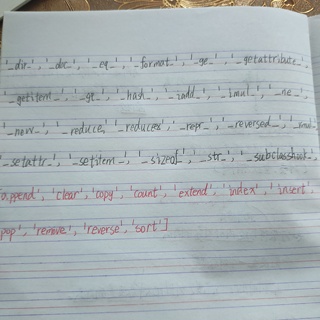 '_dir_', '_doc_', '_eq_', '_format_', '_ge_', '_getattribute_'
'_getitem_', '_gt_', '_hash_', '_iadd_', '_imul_', '_ne_',
'_new_', '_reduce_', '_reduces_', '_repr_', '_reversed_',
'_setattr_', '_setitem_', '_sizeof_', '_str_', '_subclasshook_',
'append', 'clear', 'copy', 'count', 'extend', 'index', 'insert',
'pop', 'remove', 'reverse', 'sort']